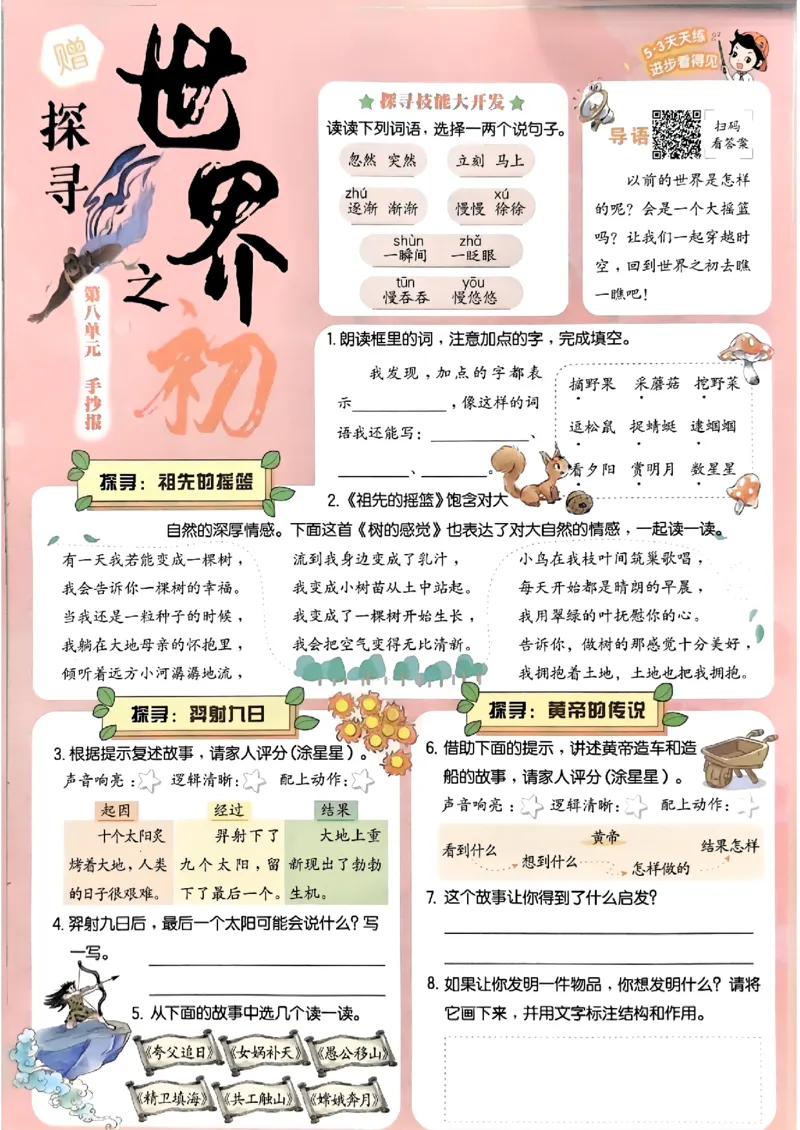 赠
探寻
世界
之
初
第八单元 手抄报
5·3天天练
进步看得见
探寻技能大开发
读读下列词语，选择一两个说句子。
忽然 突然 立刻 马上
zhú xú
逐渐 渐渐 慢慢 徐徐
shùn zhǎ
一瞬间 一眨眼
tūn yōu
慢吞吞 慢悠悠
导语
扫码
看答案
以前的世界是怎样
的呢？会是一个大摇篮
吗？让我们一起穿越时
空，回到世界之初去瞧
一瞧吧！
1. 朗读框里的词，注意加点的字，完成填空。
我发现，加点的字都表
示__________，像这样的词
语我还能写：__________、
________、________。
摘野果 采蘑菇 挖野菜
逗松鼠 捉蜻蜓 逮蝈蝈
看夕阳 赏明月 数星星
探寻：祖先的摇篮
2.《祖先的摇篮》饱含对大
自然的深厚情感。下面这首《树的感觉》也表达了对大自然的情感，一起读一读。
有一天我若能变成一棵树，
我会告诉你一棵树的幸福。
当我还是一粒种子的时候，
我躺在大地母亲的怀抱里，
倾听着远方小河潺潺地流，
流到我身边变成了乳汁，
我变成小树苗从土中站起。
我变成了一棵树开始生长，
我会把空气变得无比清新。
小鸟在我枝叶间筑巢歌唱，
每天开始都是晴朗的早晨，
我用翠绿的叶抚慰你的心。
告诉你，做树的那感觉十分美好，
我拥抱着土地，土地也把我拥抱。
探寻：羿射九日
3. 根据提示复述故事，请家人评分(涂星星)。
声音响亮： 逻辑清晰： 配上动作：
起因
十个太阳炙
烤着大地，人类
的日子很艰难。
经过
羿射下了
九个太阳，留
下了最后一个。
结果
大地上重
新现出了勃勃
生机。
4. 羿射九日后，最后一个太阳可能会说什么？写
一写。
5. 从下面的故事中选几个读一读。
《夸父追日》 《女娲补天》 《愚公移山》
《精卫填海》 《共工触山》 《嫦娥奔月》
探寻：黄帝的传说
6. 借助下面的提示，讲述黄帝造车和造
船的故事，请家人评分(涂星星)。
声音响亮： 逻辑清晰： 配上动作：
黄帝
看到什么 想到什么 怎样做的 结果怎样
7. 这个故事让你得到了什么启发？
8. 如果让你发明一件物品，你想发明什么？请将
它画下来，并用文字标注结构和作用。